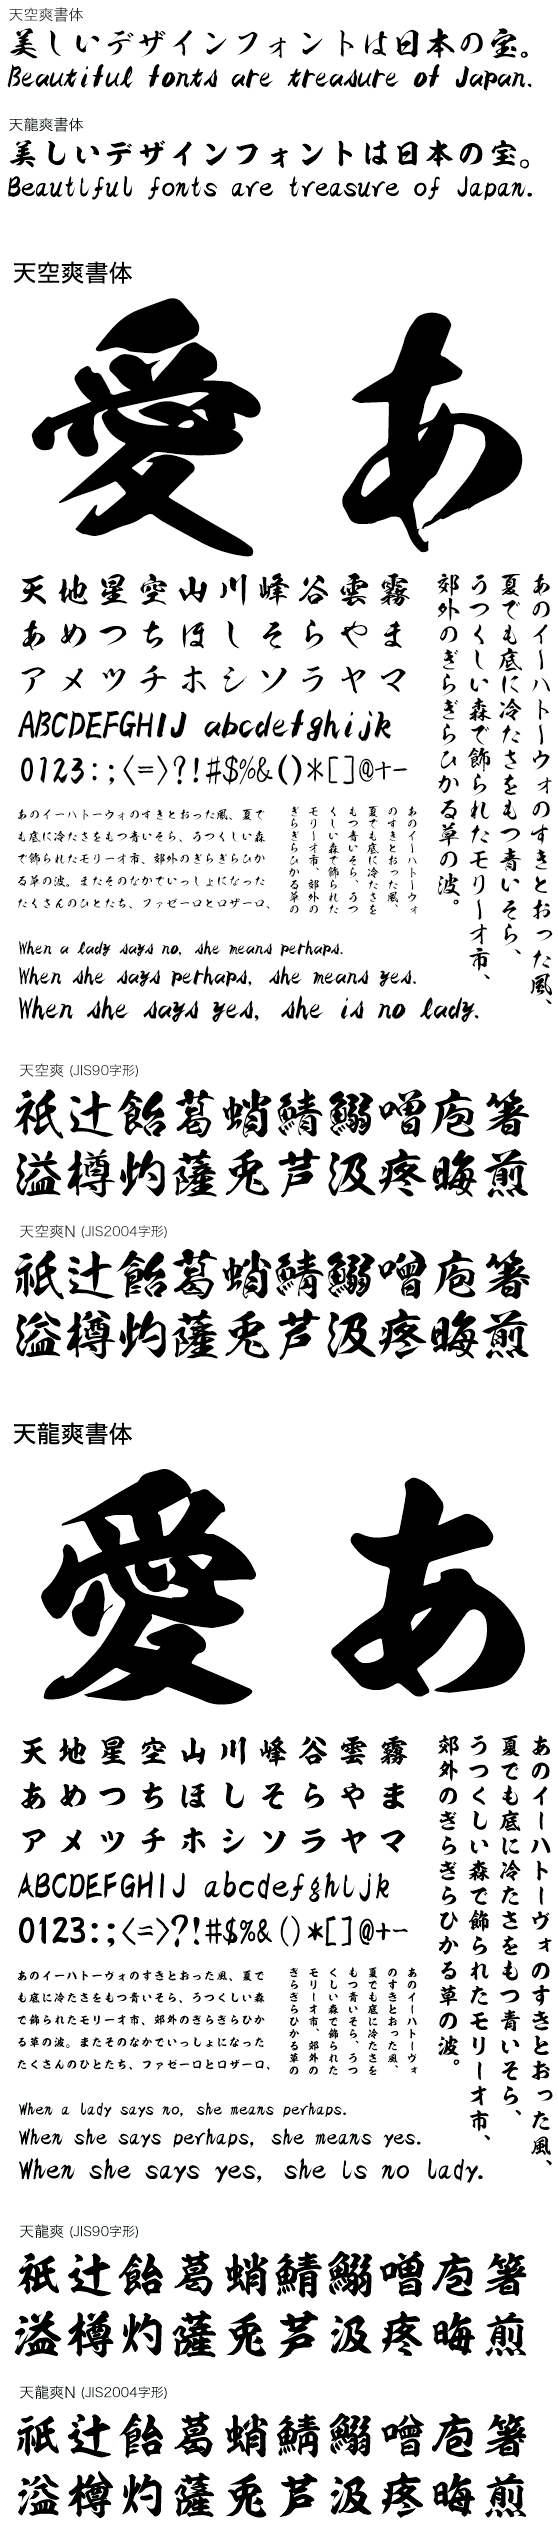 天空爽書体
美しいデザインフォントは日本の宝。
Beautiful fonts are treasure of Japan.
天龍爽書体
美しいデザインフォントは日本の宝。
Beautiful fonts are treasure of Japan.
天空爽書体
愛 あ
天地星空山川峰谷雲霧
あめつちほしそらやま
アメツチホシソラヤマ
ABCDEFGHIJ abcdefghijk
0123:;<=>?!#$%&()*[]@+-
あのイーハトーヴォのすきとおった風、
夏でも底に冷たさをもつ青いそら、
うつくしい森で飾られたモリーオ市、
郊外のぎらぎらひかる草の波。
あのイーハトーヴォのすきとおった風、夏で
も底に冷たさをもつ青いそら、うつくしい森
で飾られたモリーオ市、郊外のぎらぎらひか
る草の波。またそのなかでいっしょになった
たくさんのひとたち、ファゼーロとロザーロ、
あのイーハトーヴォ
のすきとおった風、
夏でも底に冷たさを
もつ青いそら、うつ
くしい森で飾られた
モリーオ市、郊外の
ぎらぎらひかる草の
When a lady says no, she means perhaps.
When she says perhaps, she means yes.
When she says yes, she is no lady.
天空爽 (JIS90字形)
祇辻飴葛蛸鯖鰯噌庖箸
溢樽灼薩兎芦汲疼晦煎
天空爽N (JIS2004字形)
祇辻飴葛蛸鯖鰯噌庖箸
溢樽灼薩兎芦汲疼晦煎
天龍爽書体
愛 あ
天地星空山川峰谷雲霧
あめつちほしそらやま
アメツチホシソラヤマ
ABCDEFGHIJ abcdefghijk
0123:;<=>?!#$%&()*[]@+-
あのイーハトーヴォのすきとおった風、
夏でも底に冷たさをもつ青いそら、
うつくしい森で飾られたモリーオ市、
郊外のぎらぎらひかる草の波。
あのイーハトーヴォのすきとおった風、夏で
も底に冷たさをもつ青いそら、うつくしい森
で飾られたモリーオ市、郊外のぎらぎらひか
る草の波。またそのなかでいっしょになった
たくさんのひとたち、ファゼーロとロザーロ、
あのイーハトーヴォ
のすきとおった風、
夏でも底に冷たさを
もつ青いそら、うつ
くしい森で飾られた
モリーオ市、郊外の
ぎらぎらひかる草の
When a lady says no, she means perhaps.
When she says perhaps, she means yes.
When she says yes, she is no lady.
天龍爽 (JIS90字形)
祇辻飴葛蛸鯖鰯噌庖箸
溢樽灼薩兎芦汲疼晦煎
天龍爽N (JIS2004字形)
祇辻飴葛蛸鯖鰯噌庖箸
溢樽灼薩兎芦汲疼晦煎